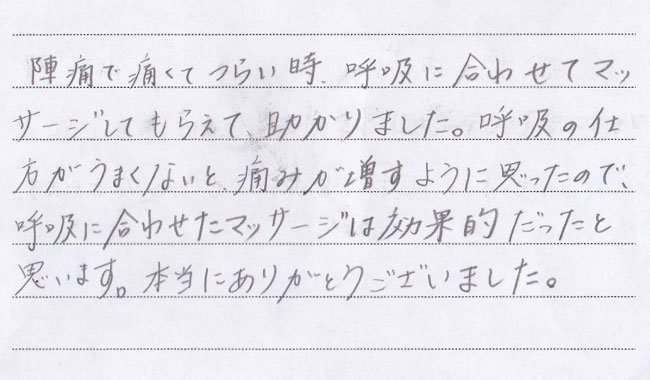 陣痛で痛くてつらい時、呼吸に合わせてマッ
サージしてもらえて、助かりました。呼吸の仕
方がうまくないと、痛みが増すように思ったので、
呼吸に合わせたマッサージは効果的だったと
思います。本当にありがとうございました。